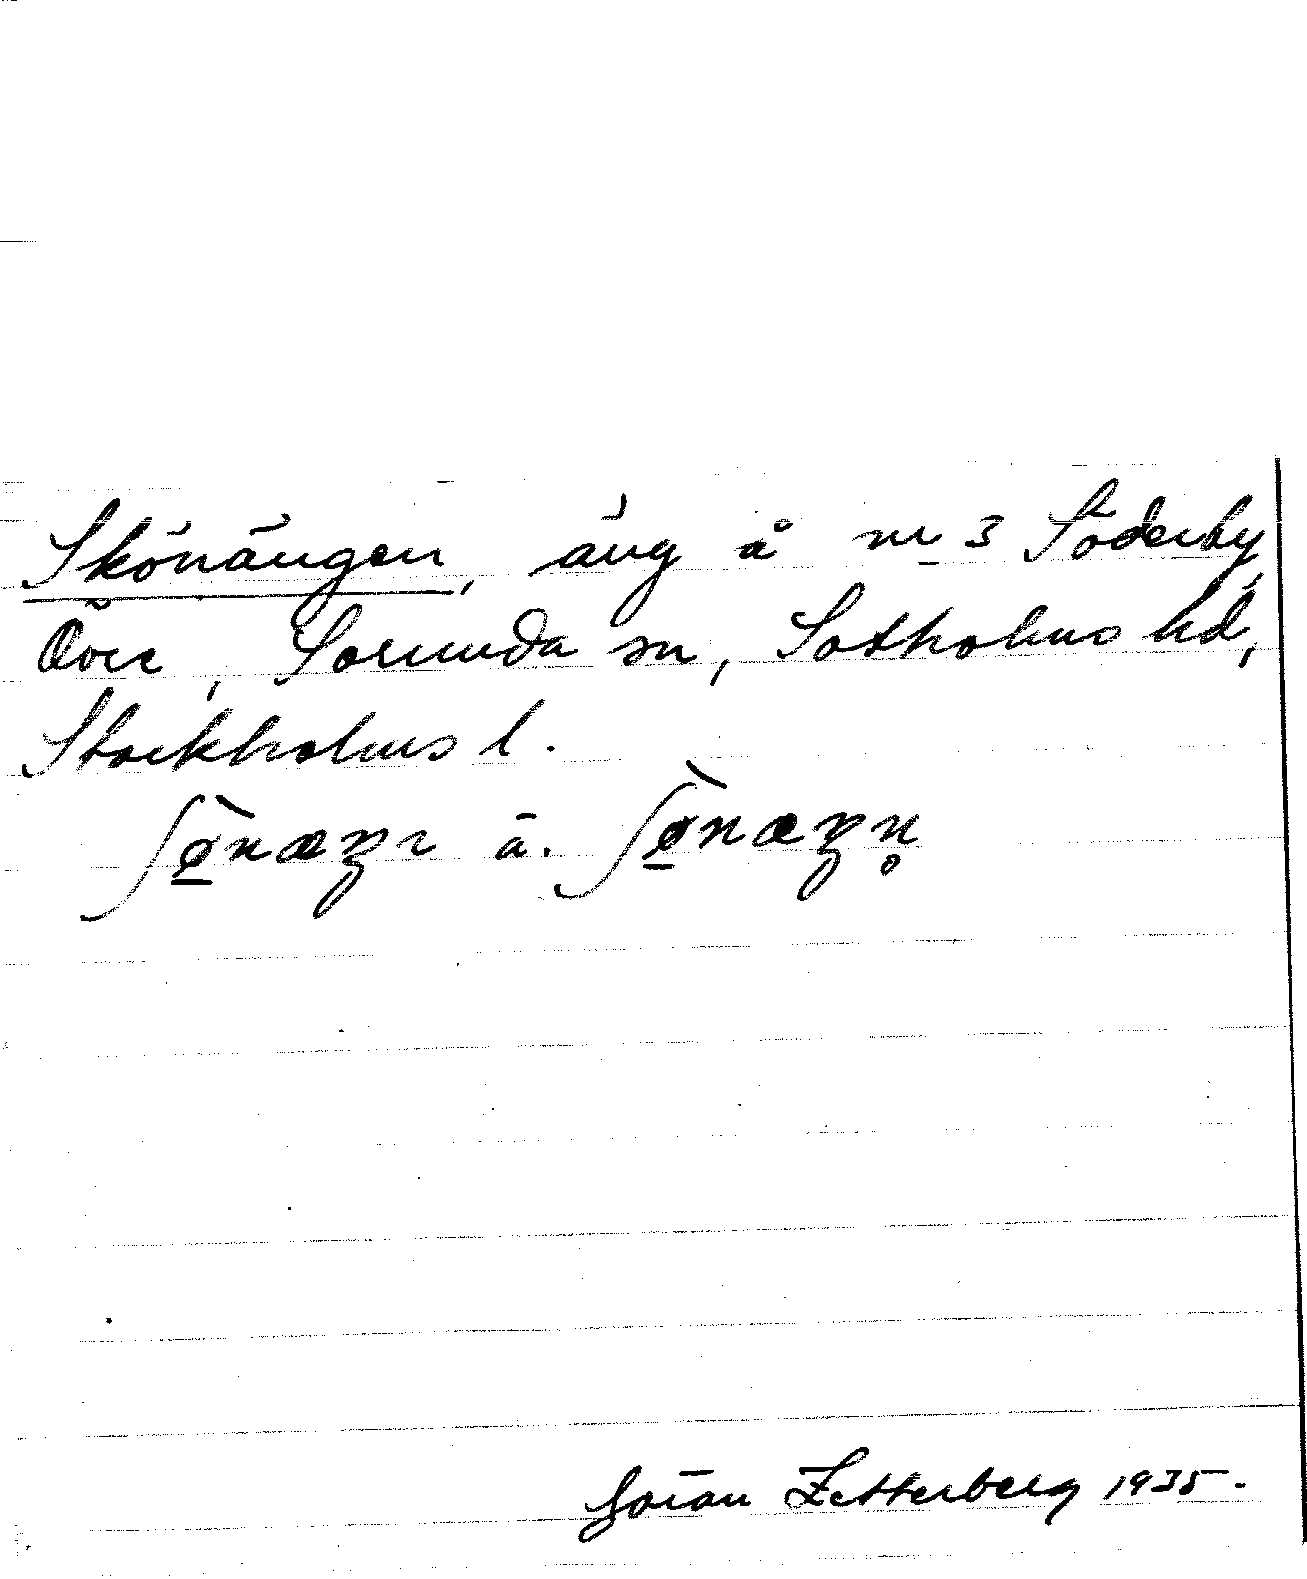 Skönängen, äng å nr 3 Söderby,
Övre, Sorunda sn, Sotholms hd,
Stockholms l.
ʃø̱̀næŋɿ ä. ʃø̱̀næŋn̥
Göran Zetterberg 1935.